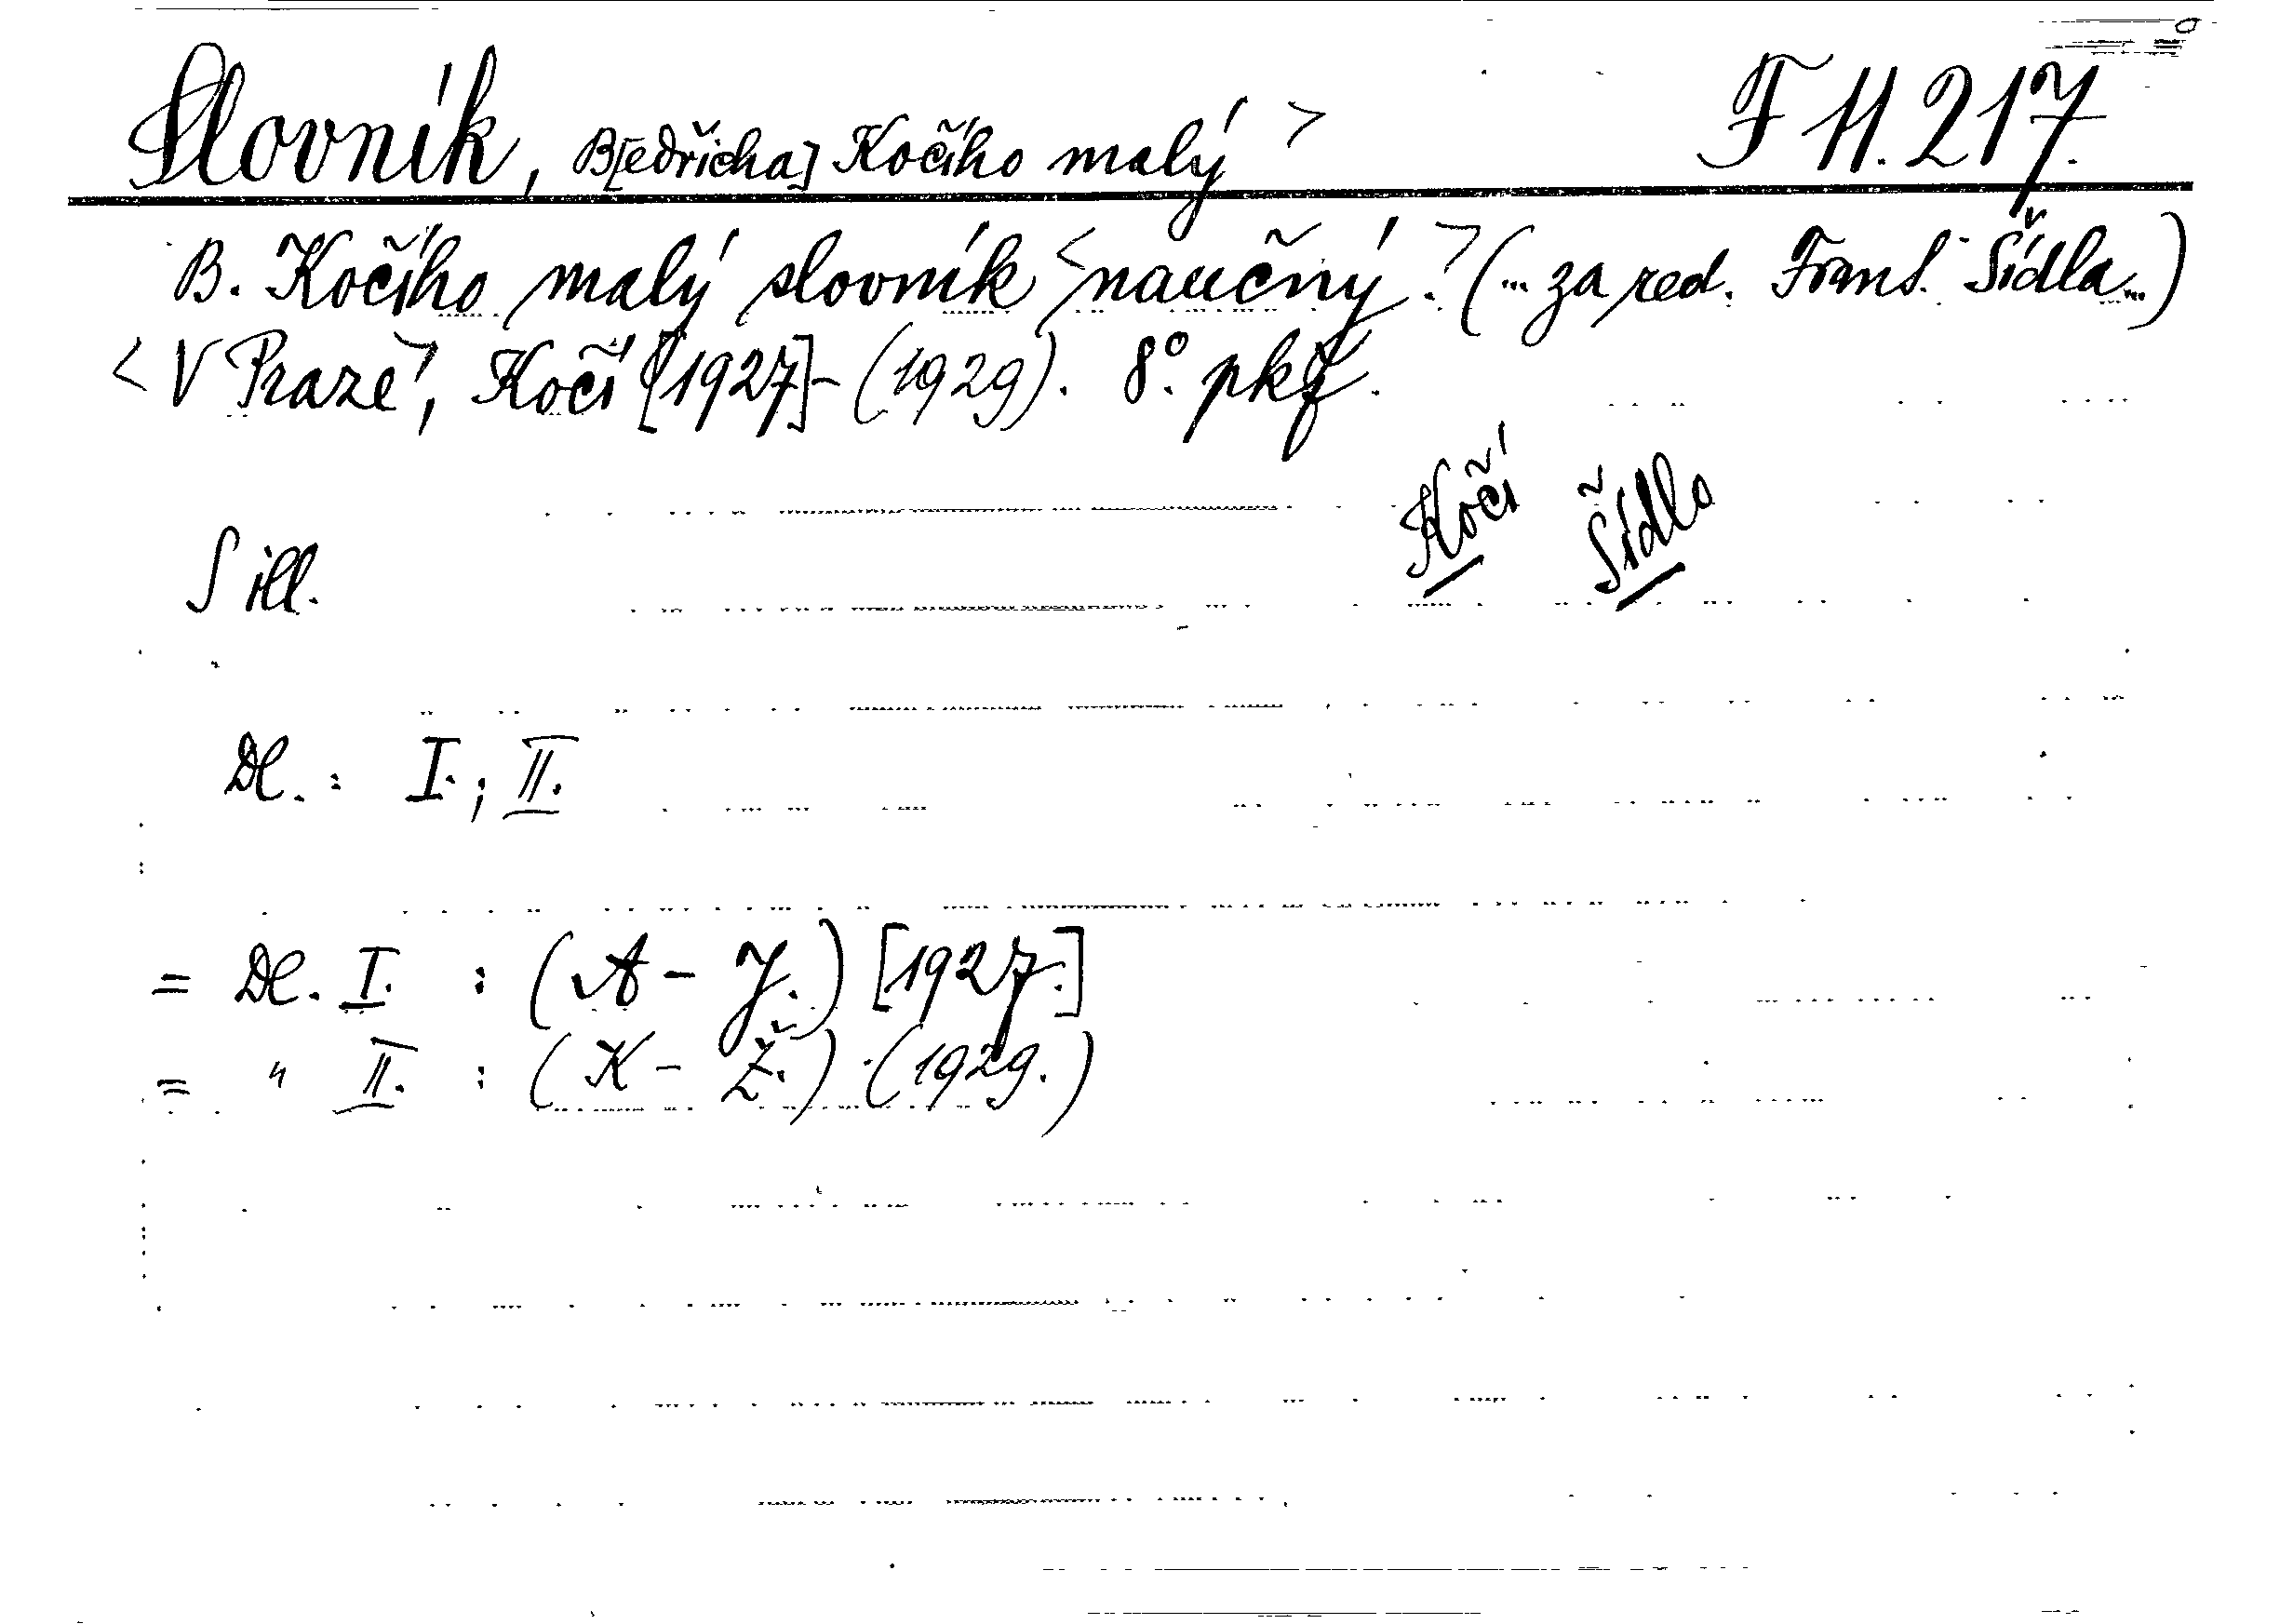 Slovník, B[edřicha] Kočího malý > F H. 217.
B. Kočího malý slovník <naučný.> (... za red. Frant. Šídla...)
<V Praze>, Kočí [1927]-(1929). 8°. pkf.
Kočí Šídlo
S ill.
Dl.: I.; II.
= Dl. I. : (A - J.) [1927.]
= " II. : (K - Ž.) (1929.)